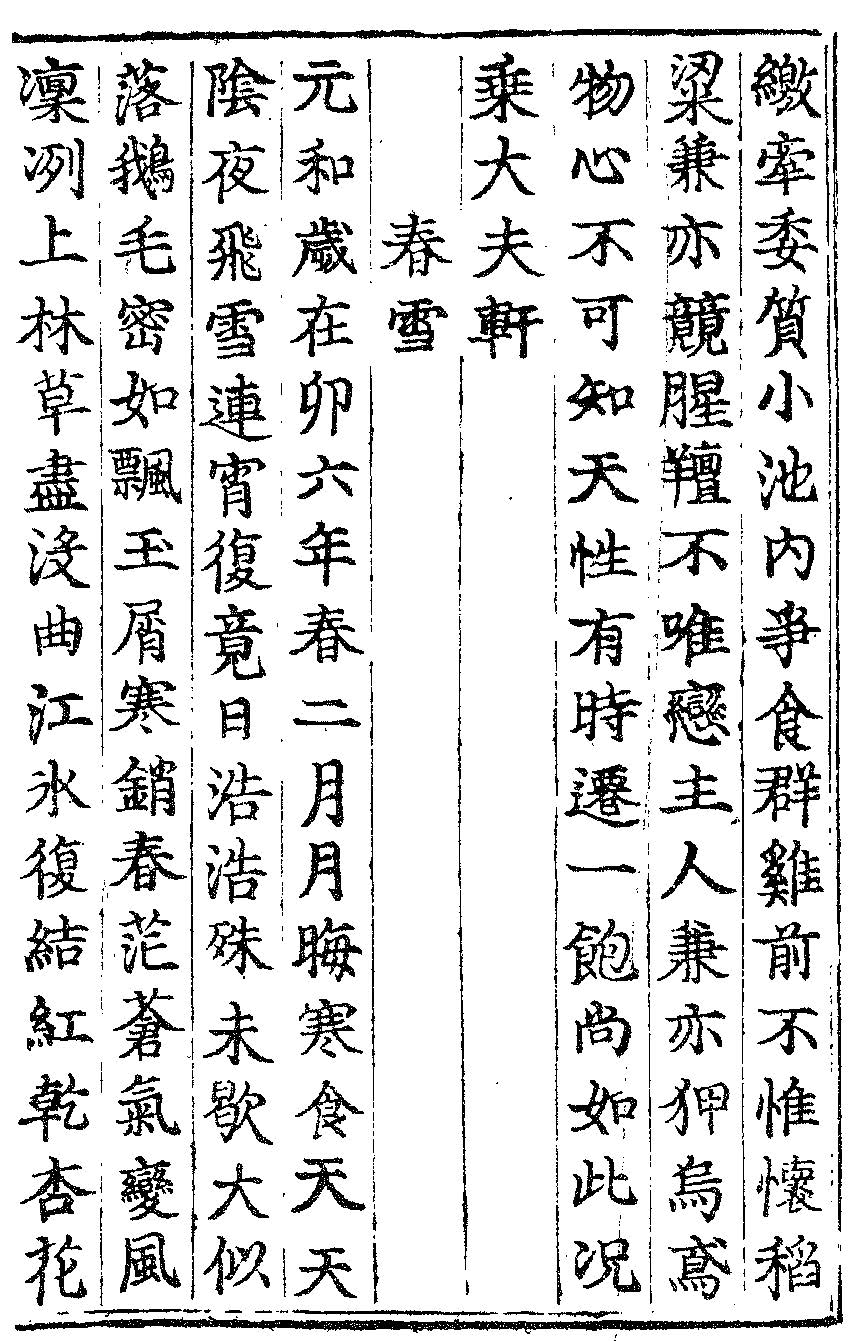 繳牽委質小池内爭食群雞前不惟懷稻
粱兼亦競腥羶不唯戀主人兼亦狎烏鳶
物心不可知天性有時遷一飽尚如此況
乗大夫軒
春雪
元和歲在卯六年春二月月晦寒食天天
陰夜飛雪連宵復竟日浩浩殊未歇大似
落鵝毛密如飄玉屑寒銷春茫蒼氣變風
凜冽上林草盡没曲江氷復結紅乾杏花